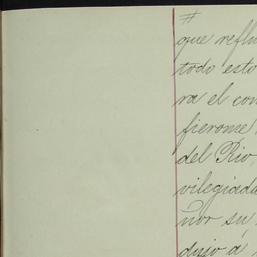 que reflu
todo esto
ra el con
fierome
del Rio,
vilegiada
por su
dujo á